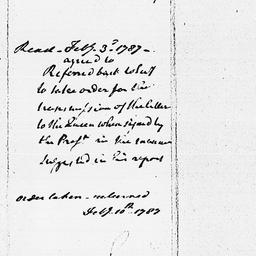 Read - Feby. 3d. 1787 -
agreed to
Referred back to Secy
to take order for the
transmission of the letter
to the Queen when signed by
the Presdt in the manner
suggested in his report
order taken - returned
Feby. 10th. 1787